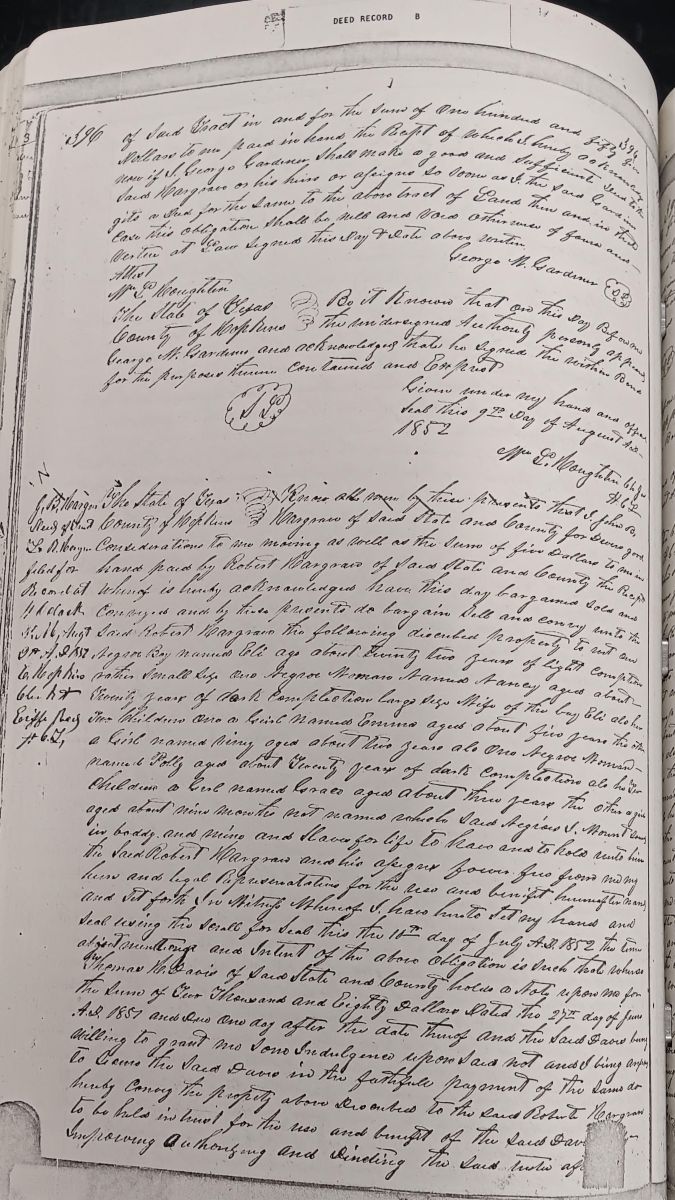 DEED RECORD B
396
of said Tract in and for the sum of One hundred and fifty
Dollars to me paid in hand the Recpt of which I hereby acknow
now if I George Gardiner shall make a good and sufficient
said Hargrave or his hirs or assigns so soon as I the said
gits a deed for the same to the above tract of Land then and in that
case this obligation shall be null and void otherwise of force and
vertue at Law signed this day & Date above written
George W. Gardiner
Attest
Wm L. Houghton
The State of Texas
Be it Known that on this day Before me
County of Hopkins
the undersigned Authority personly appeared
George W. Gardiner and acknowledged that he signed the within Bond
for the purposes therein contained and Exprest
Given under my hand and
seal this 9th Day of August A.D.
1852
Wm L. Houghton
The State of Texas
Know all men by these presents that I John B.
County of Hopkins
Hargrave of said State and County for Divers good
Considerations to me moving as well as the sum of five Dollars to me in
hand paid by Robert Hargrave of said State and County the Recpt
whereof is hereby acknowledged have this day bargained sold and
conveyed and by these presents do bargain sell and convey unto the
said Robert Hargrave the following discribed property to wit one
Negroe Boy named Eli age about twenty two years of light complection
rather small size one Negroe Woman Named Nancy aged about
Twenty years of dark complection large size Wife of the boy Eli also her
Two children one a Girl named Emma aged about five years the other
a Girl named aged about two years also One Negroe Woman
named Polly aged about Twenty years of dark complection also her Two
children a Girl named Grace aged about three years the other a
aged about nine months not named which said Negroes I
in boddy and mind and slaves for life to have and to hold unto him
the said Robert Hargrave and his assigns forever free from me my
hirs and legal Representatives for the use and benifit hereinafter named
and set forth In Witness Whereof I have hereto set my hand and
seal using the scroll for seal this the 10th day of July A.D. 1852 the
and Intent of the above Obligation is such that whereas
Thomas H. Davis of said State and County holds a Note upon me for
the sum of Thousand and Eighty Dollars Dated the 27th day of June
A.D. 1851 and due one day after the date thereof and the said Davis being
willing to grant me some Indulgence upon said not and I being
to secure the said Davis in the faithfull payment of the same do
hereby convey the property above Described to the said Robert Hargrave
to be held in trust for the use and benefit of the said Davis
Impowing Authorizing and Directing the said
J. B. Hargrave
filed for
Record at
o'clock